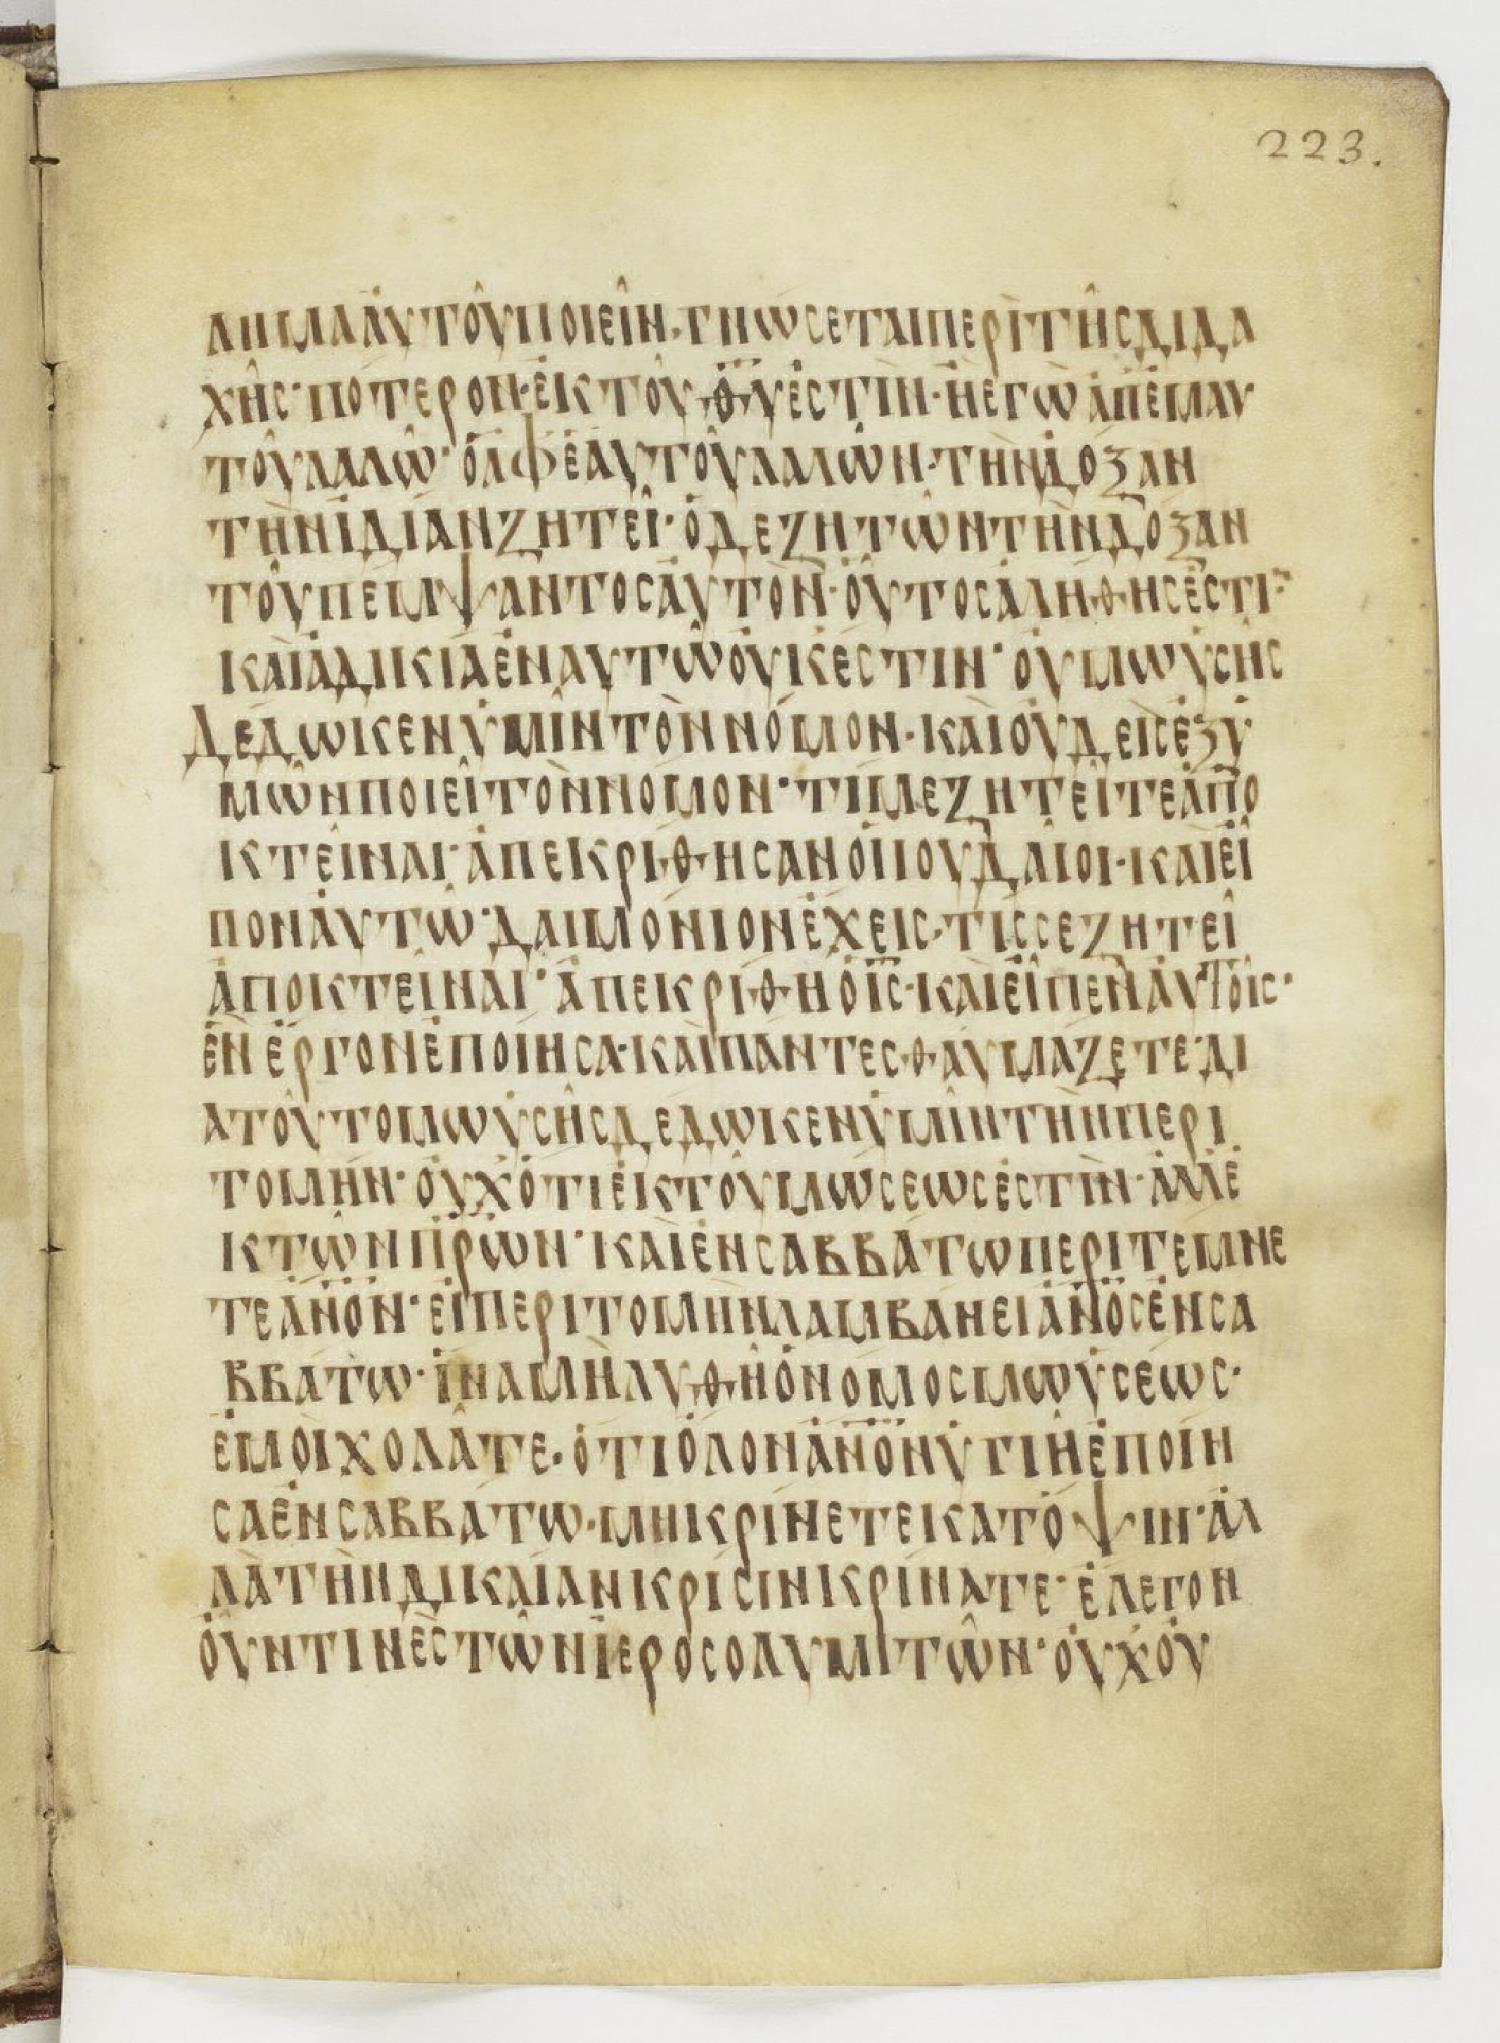 223.
ΛΗΜΑΑΥΤΟΥΠΟΙΕΙΝ·ΓΝΩΣΕΤΑΙΠΕΡΙΤΗΣΔΙΔΑ
ΧΗΣ·ΠΟΤΕΡΟΝ·ΕΚΤΟΥΘΥΕΣΤΙΝ·ΗΕΓΩΑΠΕΜΑΥ
ΤΟΥΛΑΛΩ·ΟΑΦΕΑΥΤΟΥΛΑΛΩΝ·ΤΗΝΔΟΞΑΝ
ΤΗΝΙΔΙΑΝΖΗΤΕΙ·ΟΔΕΖΗΤΩΝΤΗΝΔΟΞΑΝ
ΤΟΥΠΕΜΨΑΝΤΟΣΑΥΤΟΝ·ΟΥΤΟΣΑΛΗΘΗΣΕΣΤΙ·
ΚΑΙΑΔΙΚΙΑΕΝΑΥΤΩΟΥΚΕΣΤΙΝ·ΟΥΜΩΥΣΗΣ
ΔΕΔΩΚΕΝΥΜΙΝΤΟΝΝΟΜΟΝ·ΚΑΙΟΥΔΕΙΣΕΞΥ
ΜΩΝΠΟΙΕΙΤΟΝΝΟΜΟΝ·ΤΙΜΕΖΗΤΕΙΤΕΑΠΟ
ΚΤΕΙΝΑΙ·ΑΠΕΚΡΙΘΗΣΑΝΟΙΙΟΥΔΑΙΟΙ·ΚΑΙΕΙ
ΠΟΝΑΥΤΩ·ΔΑΙΜΟΝΙΟΝΕΧΕΙΣ·ΤΙΣΣΕΖΗΤΕΙ
ΑΠΟΚΤΕΙΝΑΙ·ΑΠΕΚΡΙΘΗΟΙΣ·ΚΑΙΕΙΠΕΝΑΥΤΟΙΣ·
ΕΝΕΡΓΟΝΕΠΟΙΗΣΑ·ΚΑΙΠΑΝΤΕΣΘΑΥΜΑΖΕΤΕ·ΔΙ
ΑΤΟΥΤΟΜΩΥΣΗΣΔΕΔΩΚΕΝΥΜΙΝΤΗΝΠΕΡΙ
ΤΟΜΗΝ·ΟΥΧΟΤΙΕΚΤΟΥΜΩΣΕΩΣΕΣΤΙΝ·ΑΛΛΕ
ΚΤΩΝΠΡΩΝ·ΚΑΙΕΝΣΑΒΒΑΤΩΠΕΡΙΤΕΜΝΕ
ΤΕΑΝΟΝ·ΕΙΠΕΡΙΤΟΜΗΝΛΑΜΒΑΝΕΙΑΝΟΣΕΝΣΑ
ΒΒΑΤΩ·ΙΝΑΜΗΛΥΘΗΟΝΟΜΟΣΜΩΥΣΕΩΣ·
ΕΜΟΙΧΟΛΑΤΕ·ΟΤΙΟΛΟΝΑΝΟΝΥΓΙΗΕΠΟΙΗ
ΣΑΕΝΣΑΒΒΑΤΩ·ΜΗΚΡΙΝΕΤΕΚΑΤΟΨΙΝ·ΑΛ
ΛΑΤΗΝΔΙΚΑΙΑΝΚΡΙΣΙΝΚΡΙΝΑΤΕ·ΕΛΕΓΟΝ
ΟΥΝΤΙΝΕΣΤΩΝΙΕΡΟΣΟΛΥΜΙΤΩΝ·ΟΥΧΟΥ